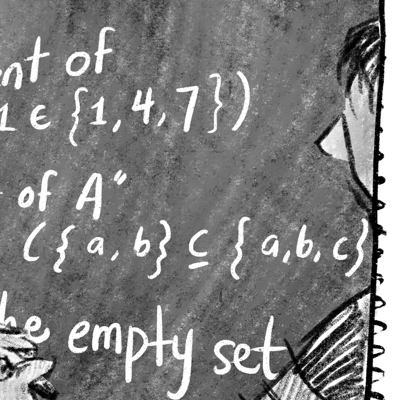 of
1 ∈ {1, 4, 7})
of A"
({a, b} ⊆ {a, b, c}
empty set